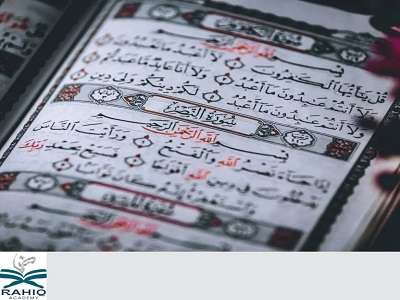 سُورَةُ الكَافِرُونَ
بِسْمِ اللَّهِ الرَّحْمَٰنِ الرَّحِيمِ
قُلْ يَٰٓأَيُّهَا ٱلْكَٰفِرُونَ لَآ أَعْبُدُ مَا تَعْبُدُونَ
وَلَآ أَنتُمْ عَٰبِدُونَ مَآ أَعْبُدُ وَلَآ أَنَا۠ عَابِدٌ مَّا عَبَدتُّمْ
وَلَآ أَنتُمْ عَٰبِدُونَ مَآ أَعْبُدُ لَكُمْ دِينُكُمْ وَلِىَ دِينِ
سُورَةُ النَّصْرِ
بِسْمِ اللَّهِ الرَّحْمَٰنِ الرَّحِيمِ
إِذَا جَآءَ نَصْرُ ٱللَّهِ وَٱلْفَتْحُ وَرَأَيْتَ ٱلنَّاسَ
يَدْخُلُونَ فِى دِينِ ٱللَّهِ أَفْوَاجًا فَسَبِّحْ بِحَمْدِ رَبِّكَ
وَٱسْتَغْفِرْهُ إِنَّهُۥ كَانَ تَوَّابًۢا
RAHIQ
ACADEMY